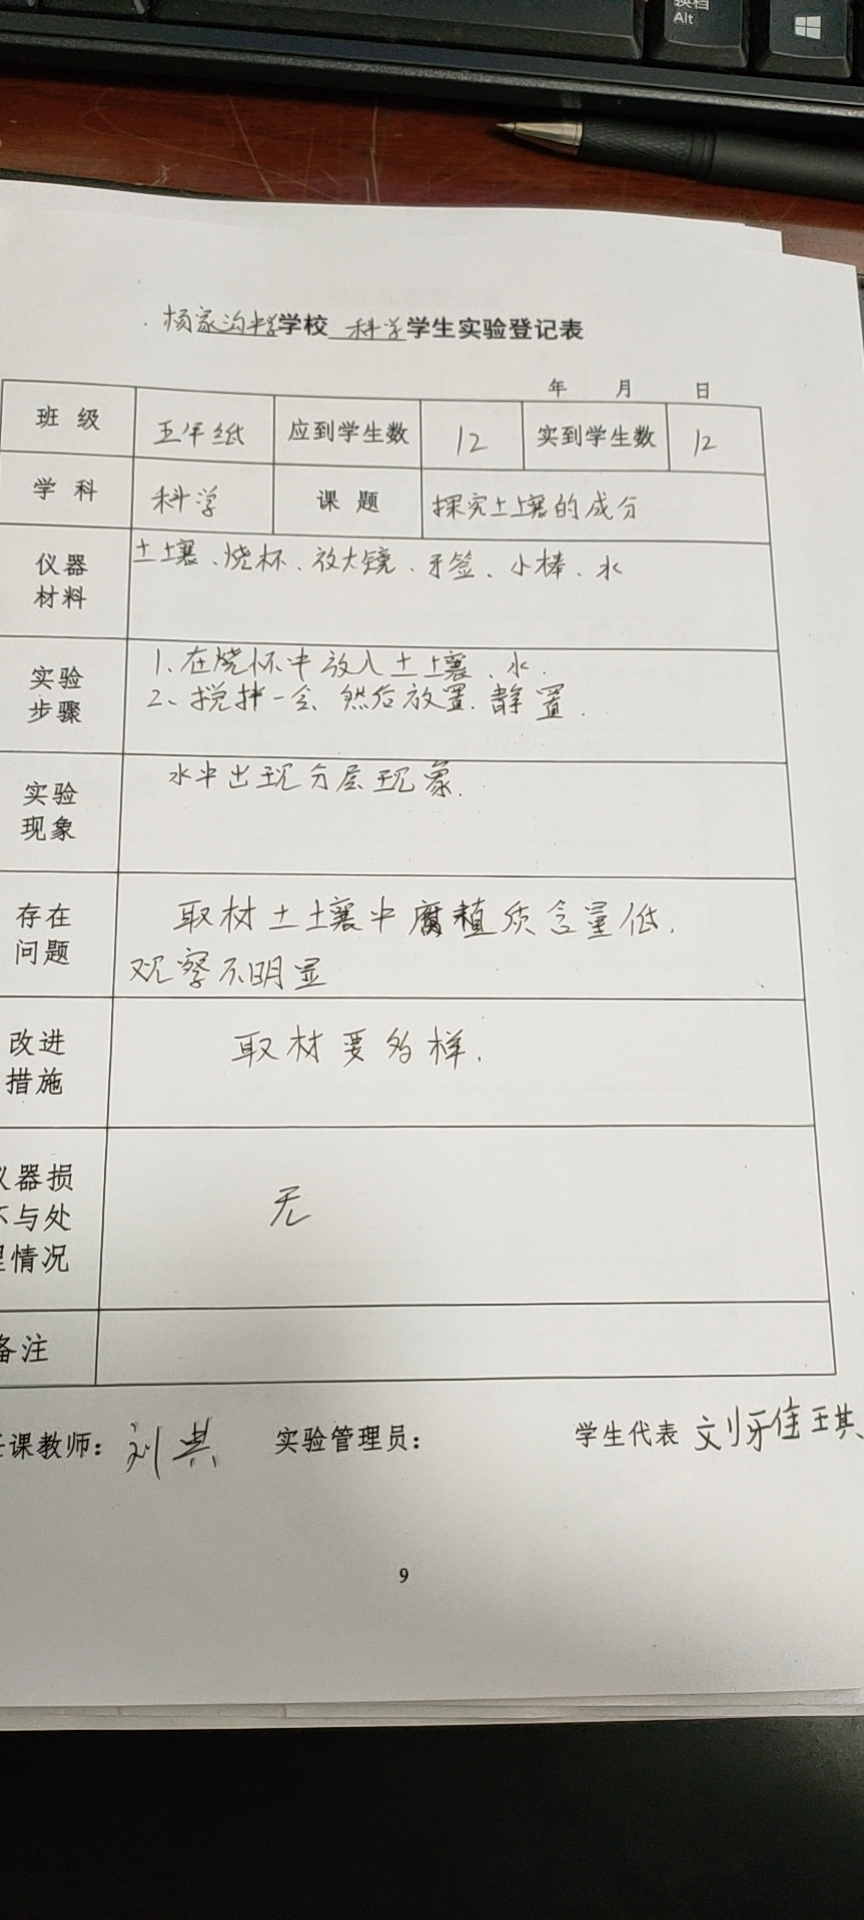 换档
Alt
杨家沟中学学校 科学学生实验登记表
年 月 日
班级 五年级 应到学生数 12 实到学生数 12
学科 科学 课题 探究土壤的成分
仪器材料 土壤、烧杯、放大镜、牙签、小棒、水
实验步骤 1、在烧杯中放入土壤、水.
2、搅拌一会、然后放置、静置.
实验现象 水中出现分层现象.
存在问题 取材土壤中腐植质含量低,
观察不明显
改进措施 取材要多样.
仪器损坏与处理情况 无
备注
任课教师: 刘其 实验管理员: 学生代表 刘牙佳 王其
9